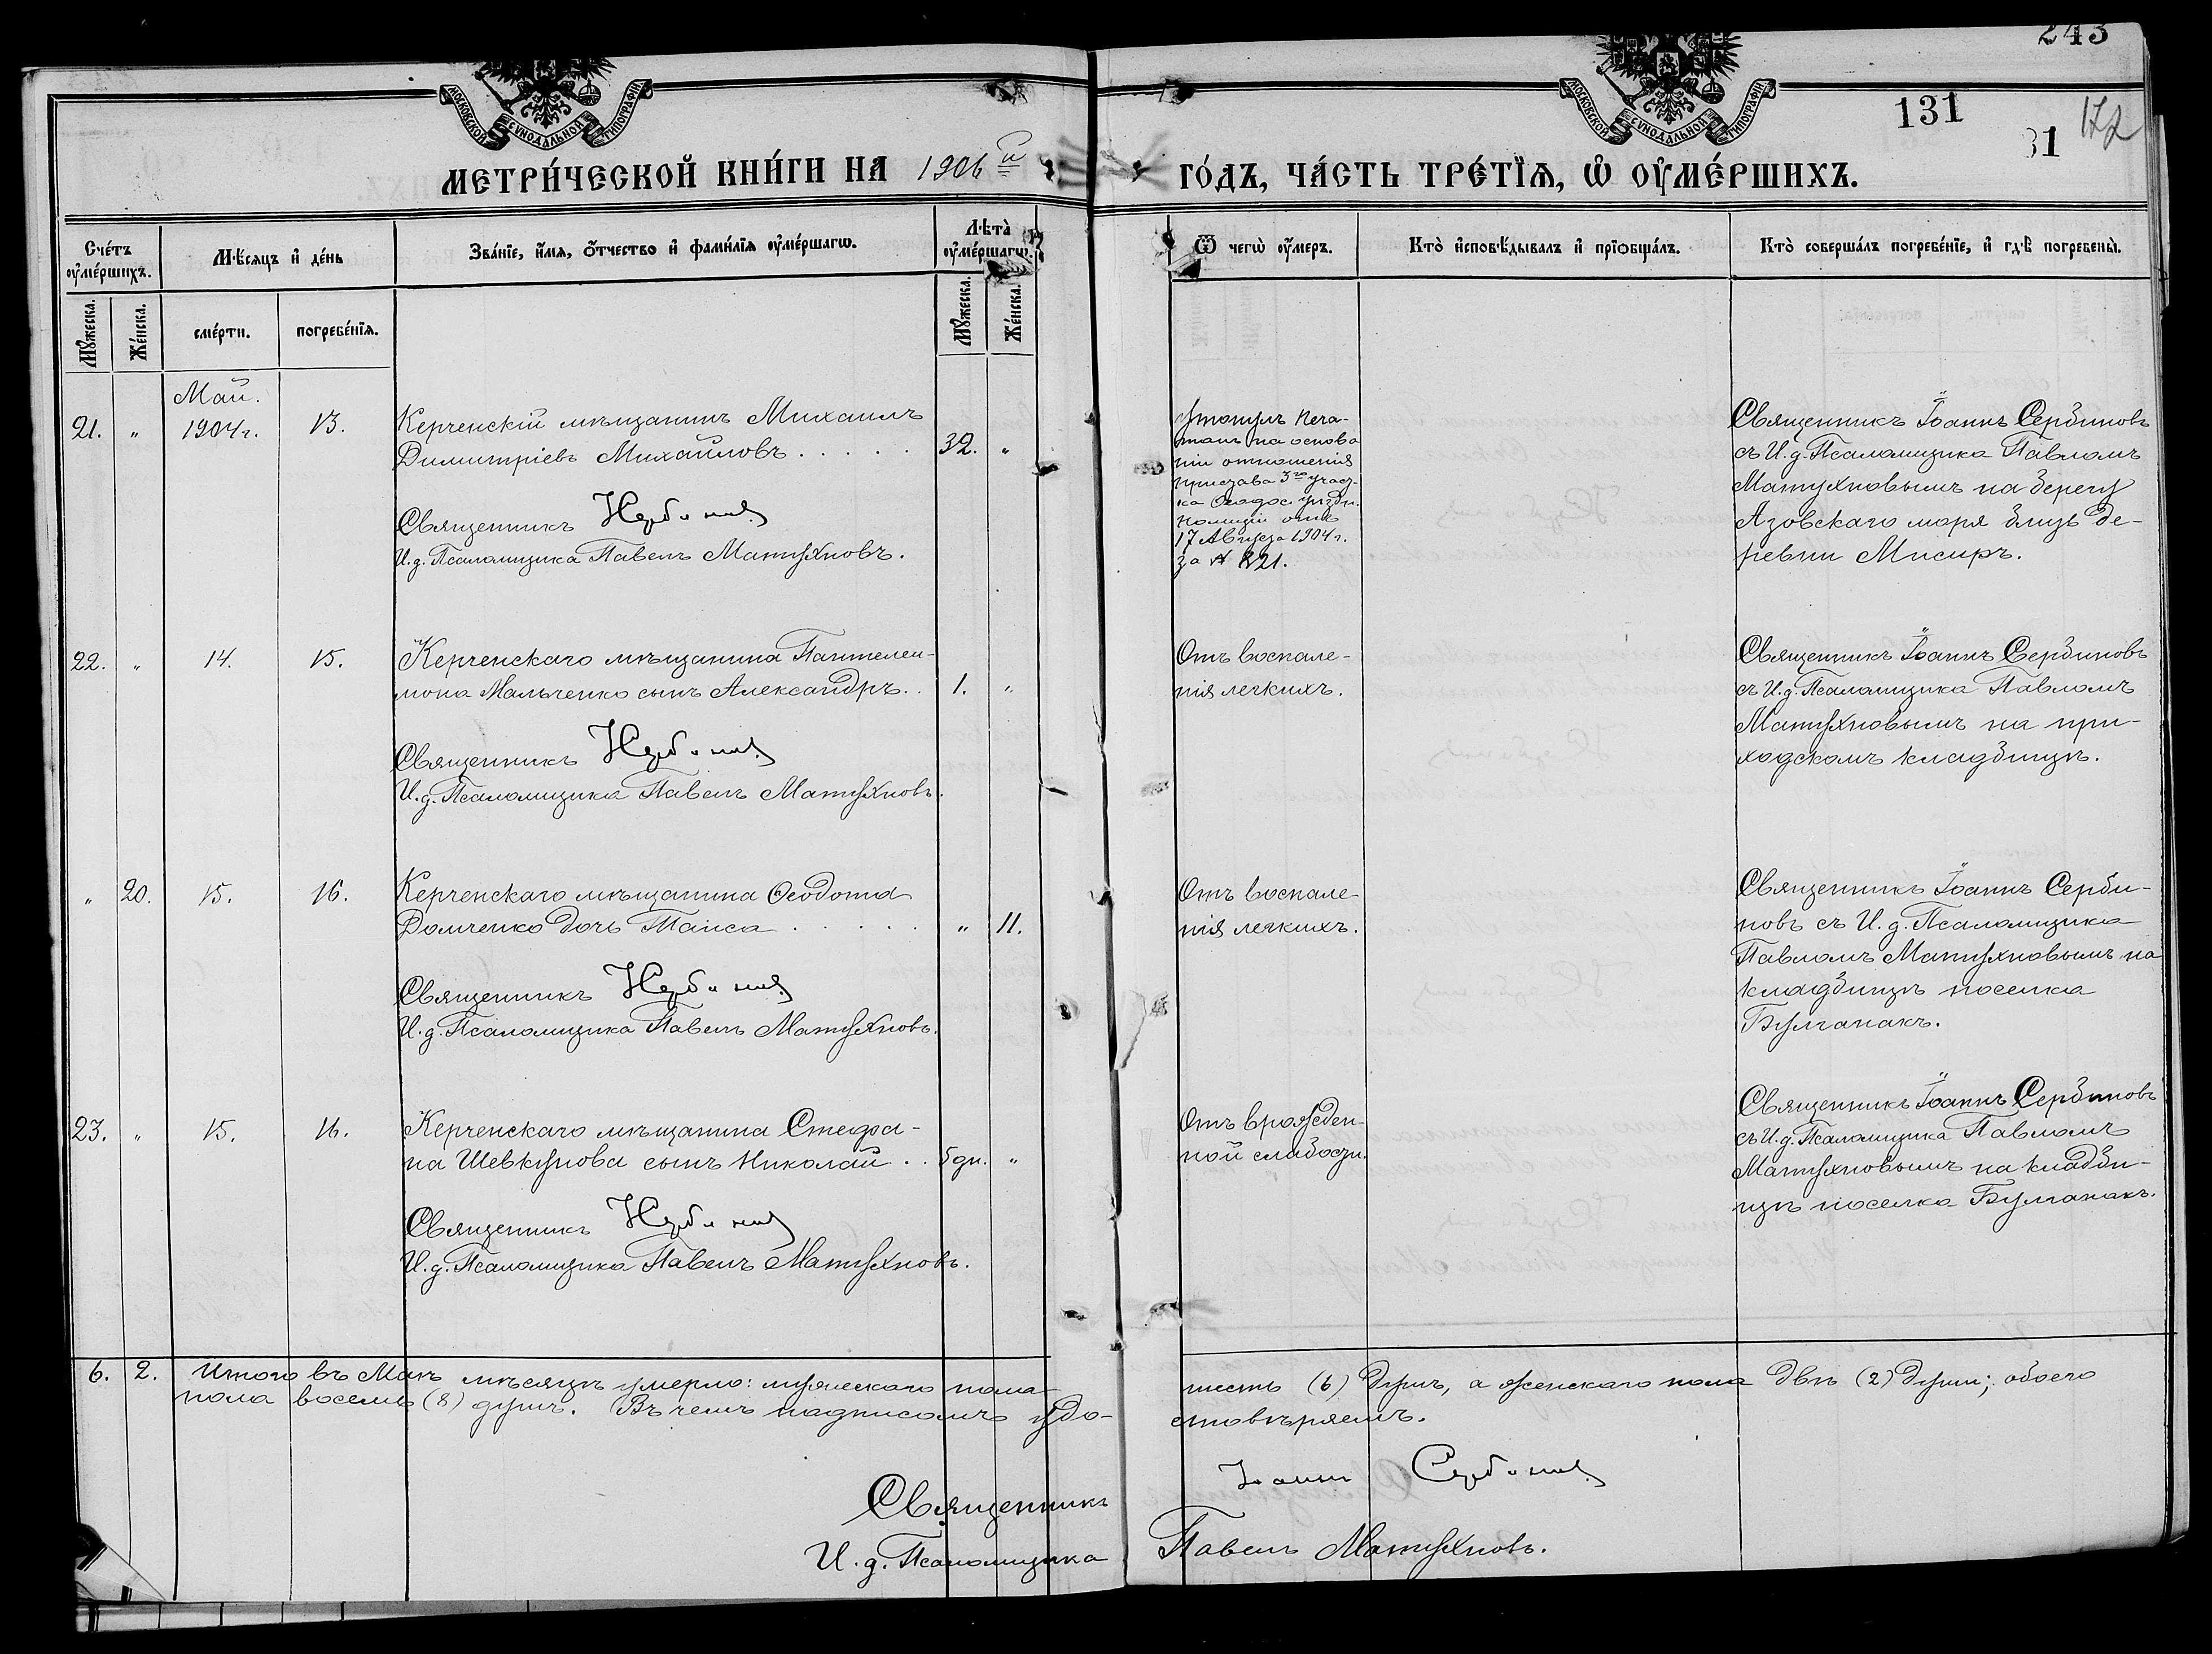 243
131
31
172
МОСКОВСКОЙ СѴНОДАЛЬНОЙ ТИПОГРАФІИ
МОСКОВСКОЙ СѴНОДАЛЬНОЙ ТИПОГРАФІИ
МЕТРИ́ЧЕСКОЙ КНИ́ГИ НА 1906й
ГО́ДЪ, ЧА́СТЬ ТРЕ́ТЇѦ, Ѡ ОУ҆МЕ́РШИХЪ.
Сче́тъ оу҆ме́ршихъ.
Мѣ́сяцъ и҆ де́нь
Зва́нїе, и҆́мя, ѻ҆́тчество и҆ фами́лїя оу҆ме́ршагѡ.
Лѣта̀ оу҆ме́ршагѡ.
Ѿ чегѡ̀ оу҆́меръ.
Кто̀ и҆сповѣ́дывалъ и҆ прїѡбща́лъ.
Кто̀ соверша́лъ погребе́нїе, и҆ гдѣ̀ погребены̀.
Мꙋ́жеска.
Же́нска.
сме́рти.
погребе́нїя.
Мꙋ́жеска.
Же́нска.
Май.
21. „ 1904г. 13. Керченскій мѣщанинъ Михаилъ
Димитріевъ Михайловъ . . . . . 32. „
Священникъ Сербиновъ
И. д. Псаломщика Павелъ Матухновъ.
Утонулъ
на основа
ніи отношенія
пристава 3го участ-
ка Ѳеодос. уѣздн.
полиціи отъ
17 Августа 1904 г.
за № 821.
Священникъ Іоаннъ Сербиновъ
съ И. д. Псаломщика Павломъ
Матухновымъ на берегу
Азовскаго моря близъ де-
ревни Мисиръ.
22. „ 14. 15. Керченскаго мѣщанина Пантелеи-
мона Мальченко сынъ Александръ. . 1. „
Священникъ Сербиновъ
И. д. Псаломщика Павелъ Матухновъ.
Отъ воспале-
нія легкихъ.
Священникъ Іоаннъ Сербиновъ
съ И. д. Псаломщика Павломъ
Матухновымъ на при-
ходскомъ кладбищѣ.
„ 20. 15. 16. Керченскаго мѣщанина Ѳеодота
Домченко дочь Таиса . . . . . „ 11.
Священникъ Сербиновъ
И. д. Псаломщика Павелъ Матухновъ.
Отъ воспале-
нія легкихъ.
Священникъ Іоаннъ Серби-
новъ съ И. д. Псаломщика
Павломъ Матухновымъ на
кладбищѣ поселка
Булганакъ.
23. „ 15. 16. Керченскаго мѣщанина Стефа-
на Шевкунова сынъ Николай . . 5 дн. „
Священникъ Сербиновъ
И. д. Псаломщика Павелъ Матухновъ.
Отъ врожден-
ной слабости.
Священникъ Іоаннъ Сербиновъ
съ И. д. Псаломщика Павломъ
Матухновымъ на кладби-
щѣ поселка Булганакъ.
6. 2. Итого въ Маѣ мѣсяцѣ умерло: мужескаго пола шесть (6) душъ, а женскаго пола двѣ (2) души; обоего
пола восемь (8) душъ. Въ чемъ подписомъ удо-стовѣряемъ.
Священникъ Іоаннъ Сербиновъ
И. д. Псаломщика Павелъ Матухновъ.